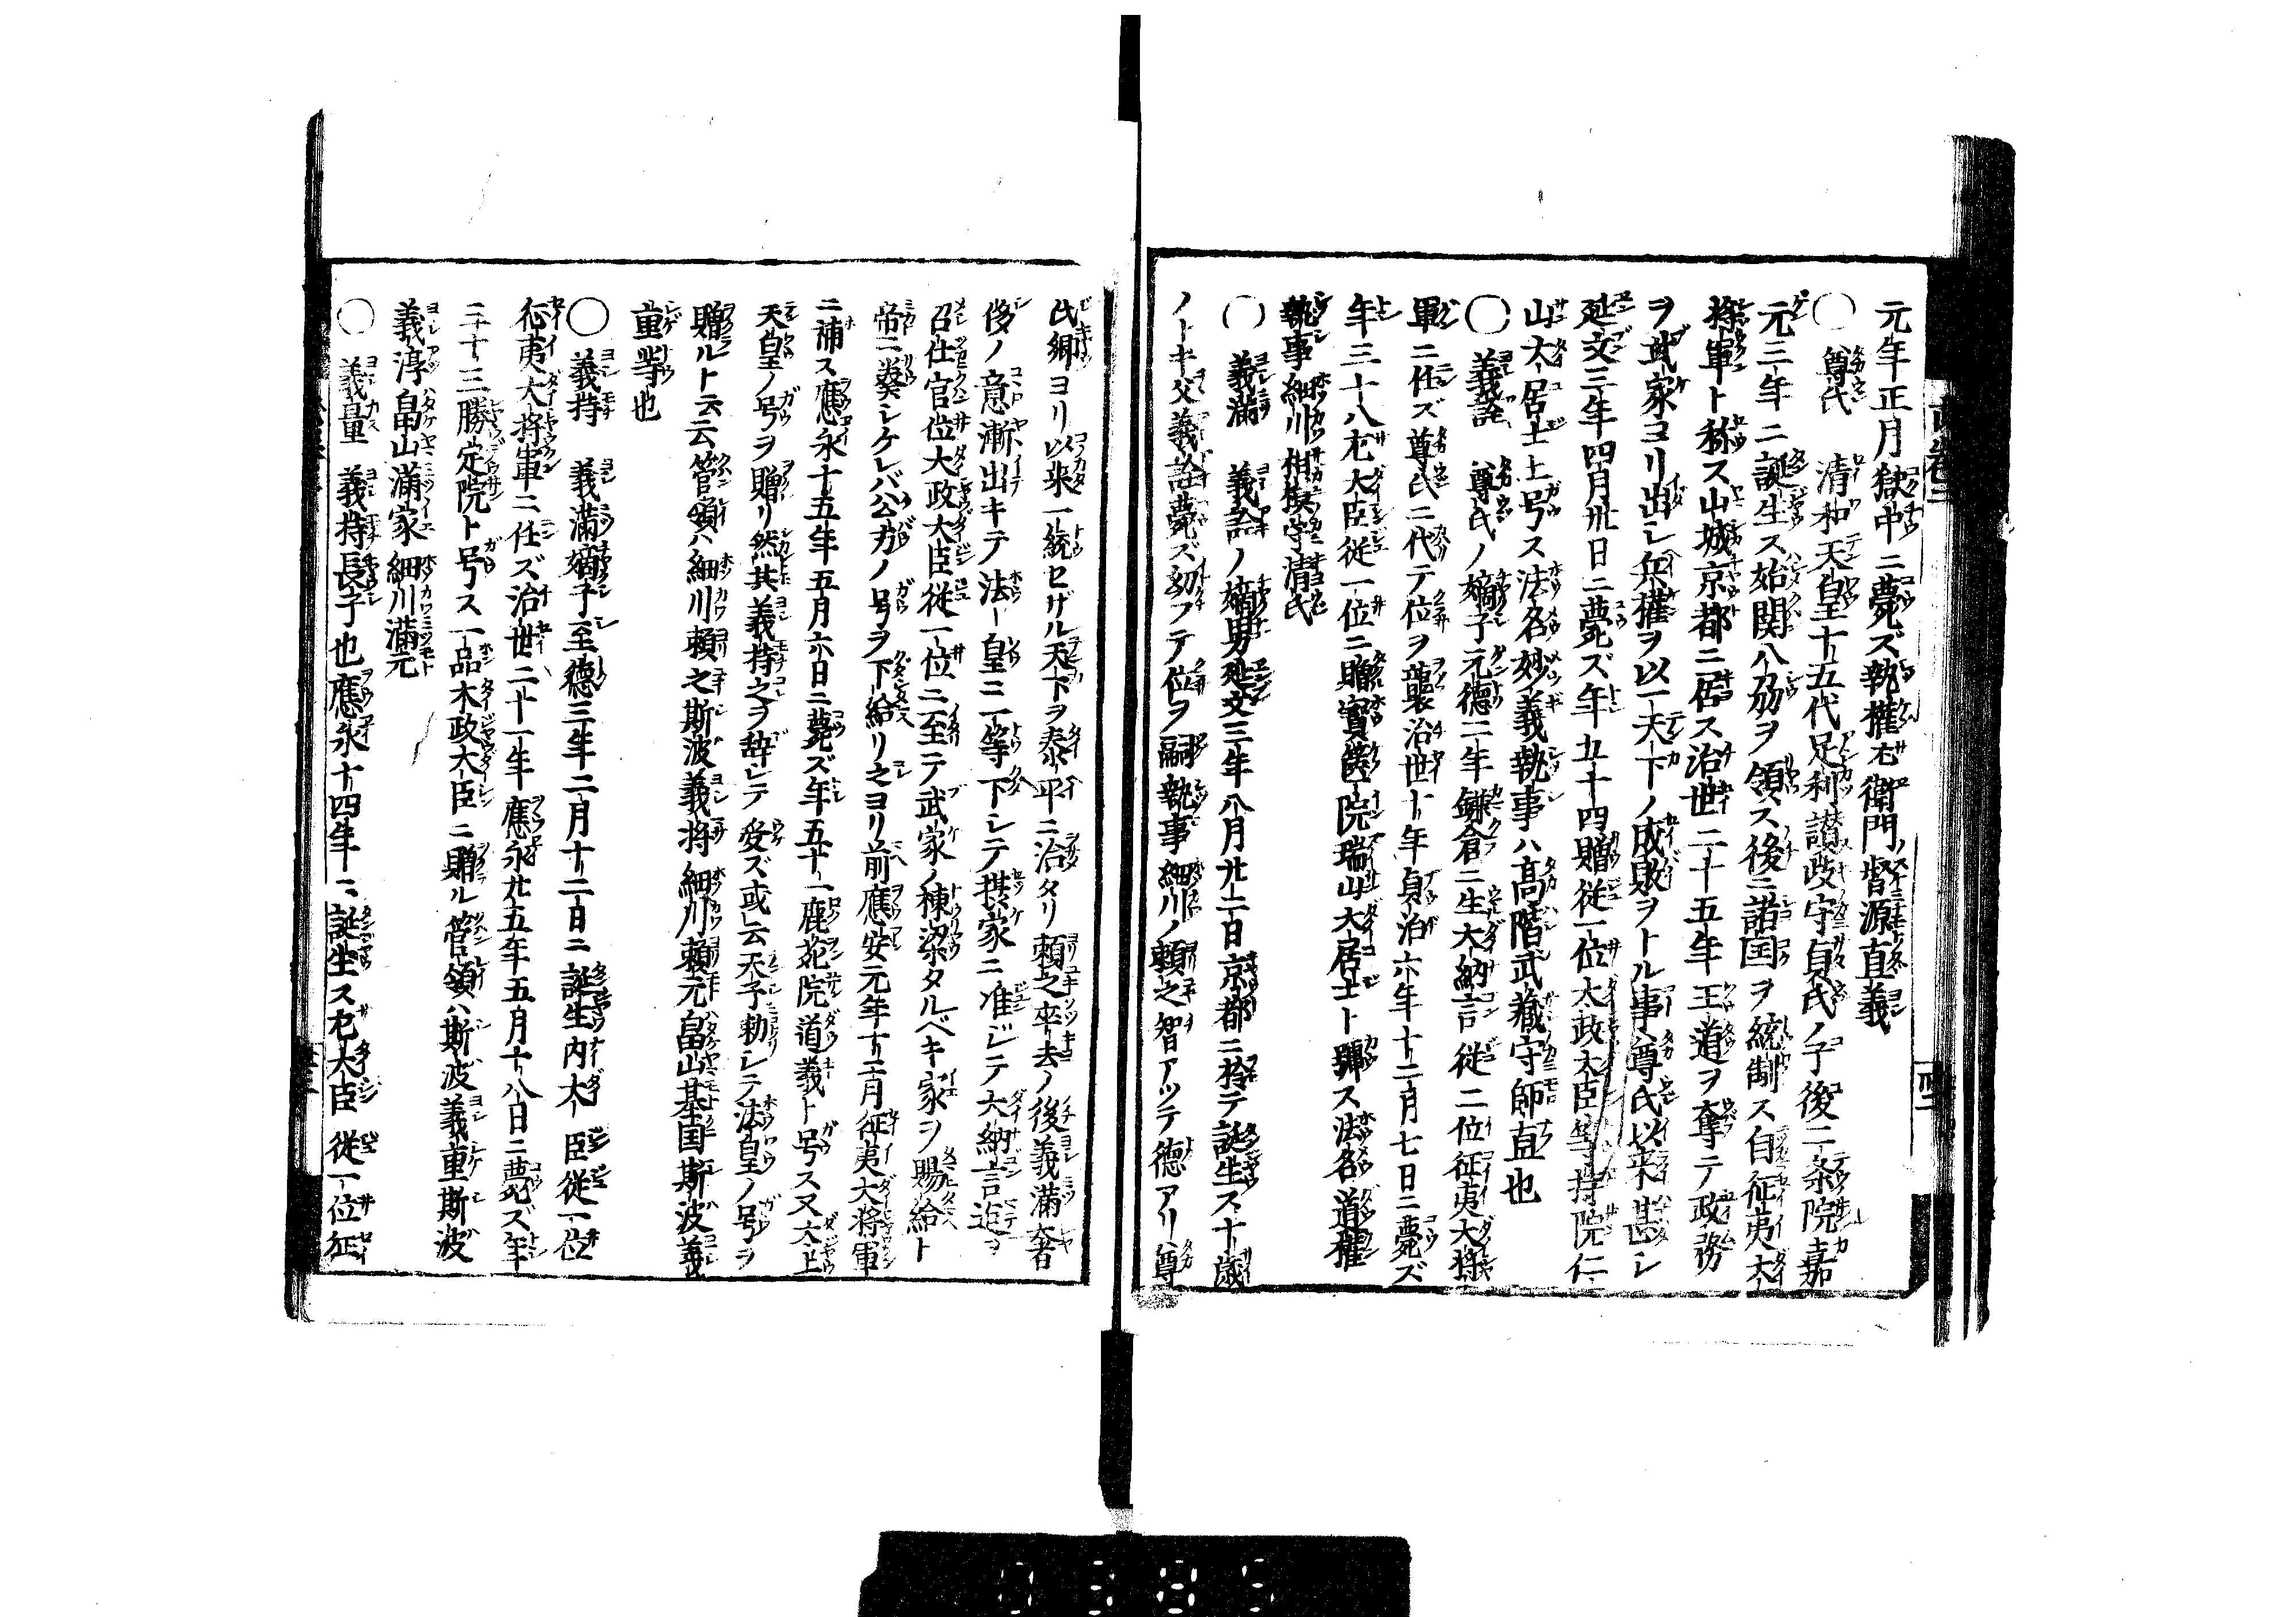 元年正月獄中ニ薨ズ執権左衛門ノ督源直義
○尊氏　清和天皇十五代足利讃岐守貞氏ノ子後二条院嘉
元三年ニ誕生ス始関八刕ヲ領ス後ニ諸国ヲ統制ス自征夷大
将軍ト称ス山城京都ニ居ス治世二十五年王道ヲ奪テ政務
ヲ武家ヨリ出シ兵権ヲ以一天下ノ成敗ヲトル事尊氏以来甚シ
延文三年四月卅日ニ薨ズ年五十四贈従一位太政大臣等持院仁
山大居士ト号ス法名妙義執事ハ高階武蔵守師直也
○義詮　尊氏ノ嫡子元徳二年鎌倉ニ生大納言従二位征夷大将
軍ニ任ズ尊氏ニ代テ位ヲ襲治世十年貞治六年十二月七日ニ薨ズ
年三十八左大臣従一位ニ贈寳篋院瑞山大居士ト號ス法名道権
執事細川相模守清氏
○義満　義詮ノ嫡男延文三年八月廿二日京都ニ於テ誕生ス十歳
ノトキ父義詮薨ズ幼フテ位ヲ嗣執事細川ノ頼之智アツテ徳アリ尊
氏卿ヨリ以来一統セザル天下ヲ泰平ニ治タリ頼之卒去ノ後義満奢
侈ノ意漸出キテ法皇ニ一等下シテ摂家ニ准ジテ大納言迄ヲ
召仕官位大政大臣従一位ニ至テ武家ノ棟梁タルベキ家ヲ賜給ト
帝ニ奏シケレバ公方ノ号ヲ下給リ之ヨリ前應安元年十二月征夷大将軍
ニ補ス應永十五年五月六日ニ薨ズ年五十一鹿苑院道義ト号ス又太上
天皇ノ号ヲ贈リ然其義持之ヲ辞シテ受ズ或云天子勅シテ法皇ノ号ヲ
贈ルト云云管領ハ細川頼之斯波義将細川頼元畠山基国斯波義
重等也
○義持　義満嫡子至徳三年二月十二日ニ誕生内大臣従一位
征夷大将軍ニ任ズ治世二十一年應永廿五年五月十八日ニ薨ズ年
二十三勝定院ト号ス一品木政大臣ニ贈ル管領ハ斯波義重斯波
義淳畠山満家細川満元
○義量　義持長子也應永十四年ニ誕生ス左大臣従一位征